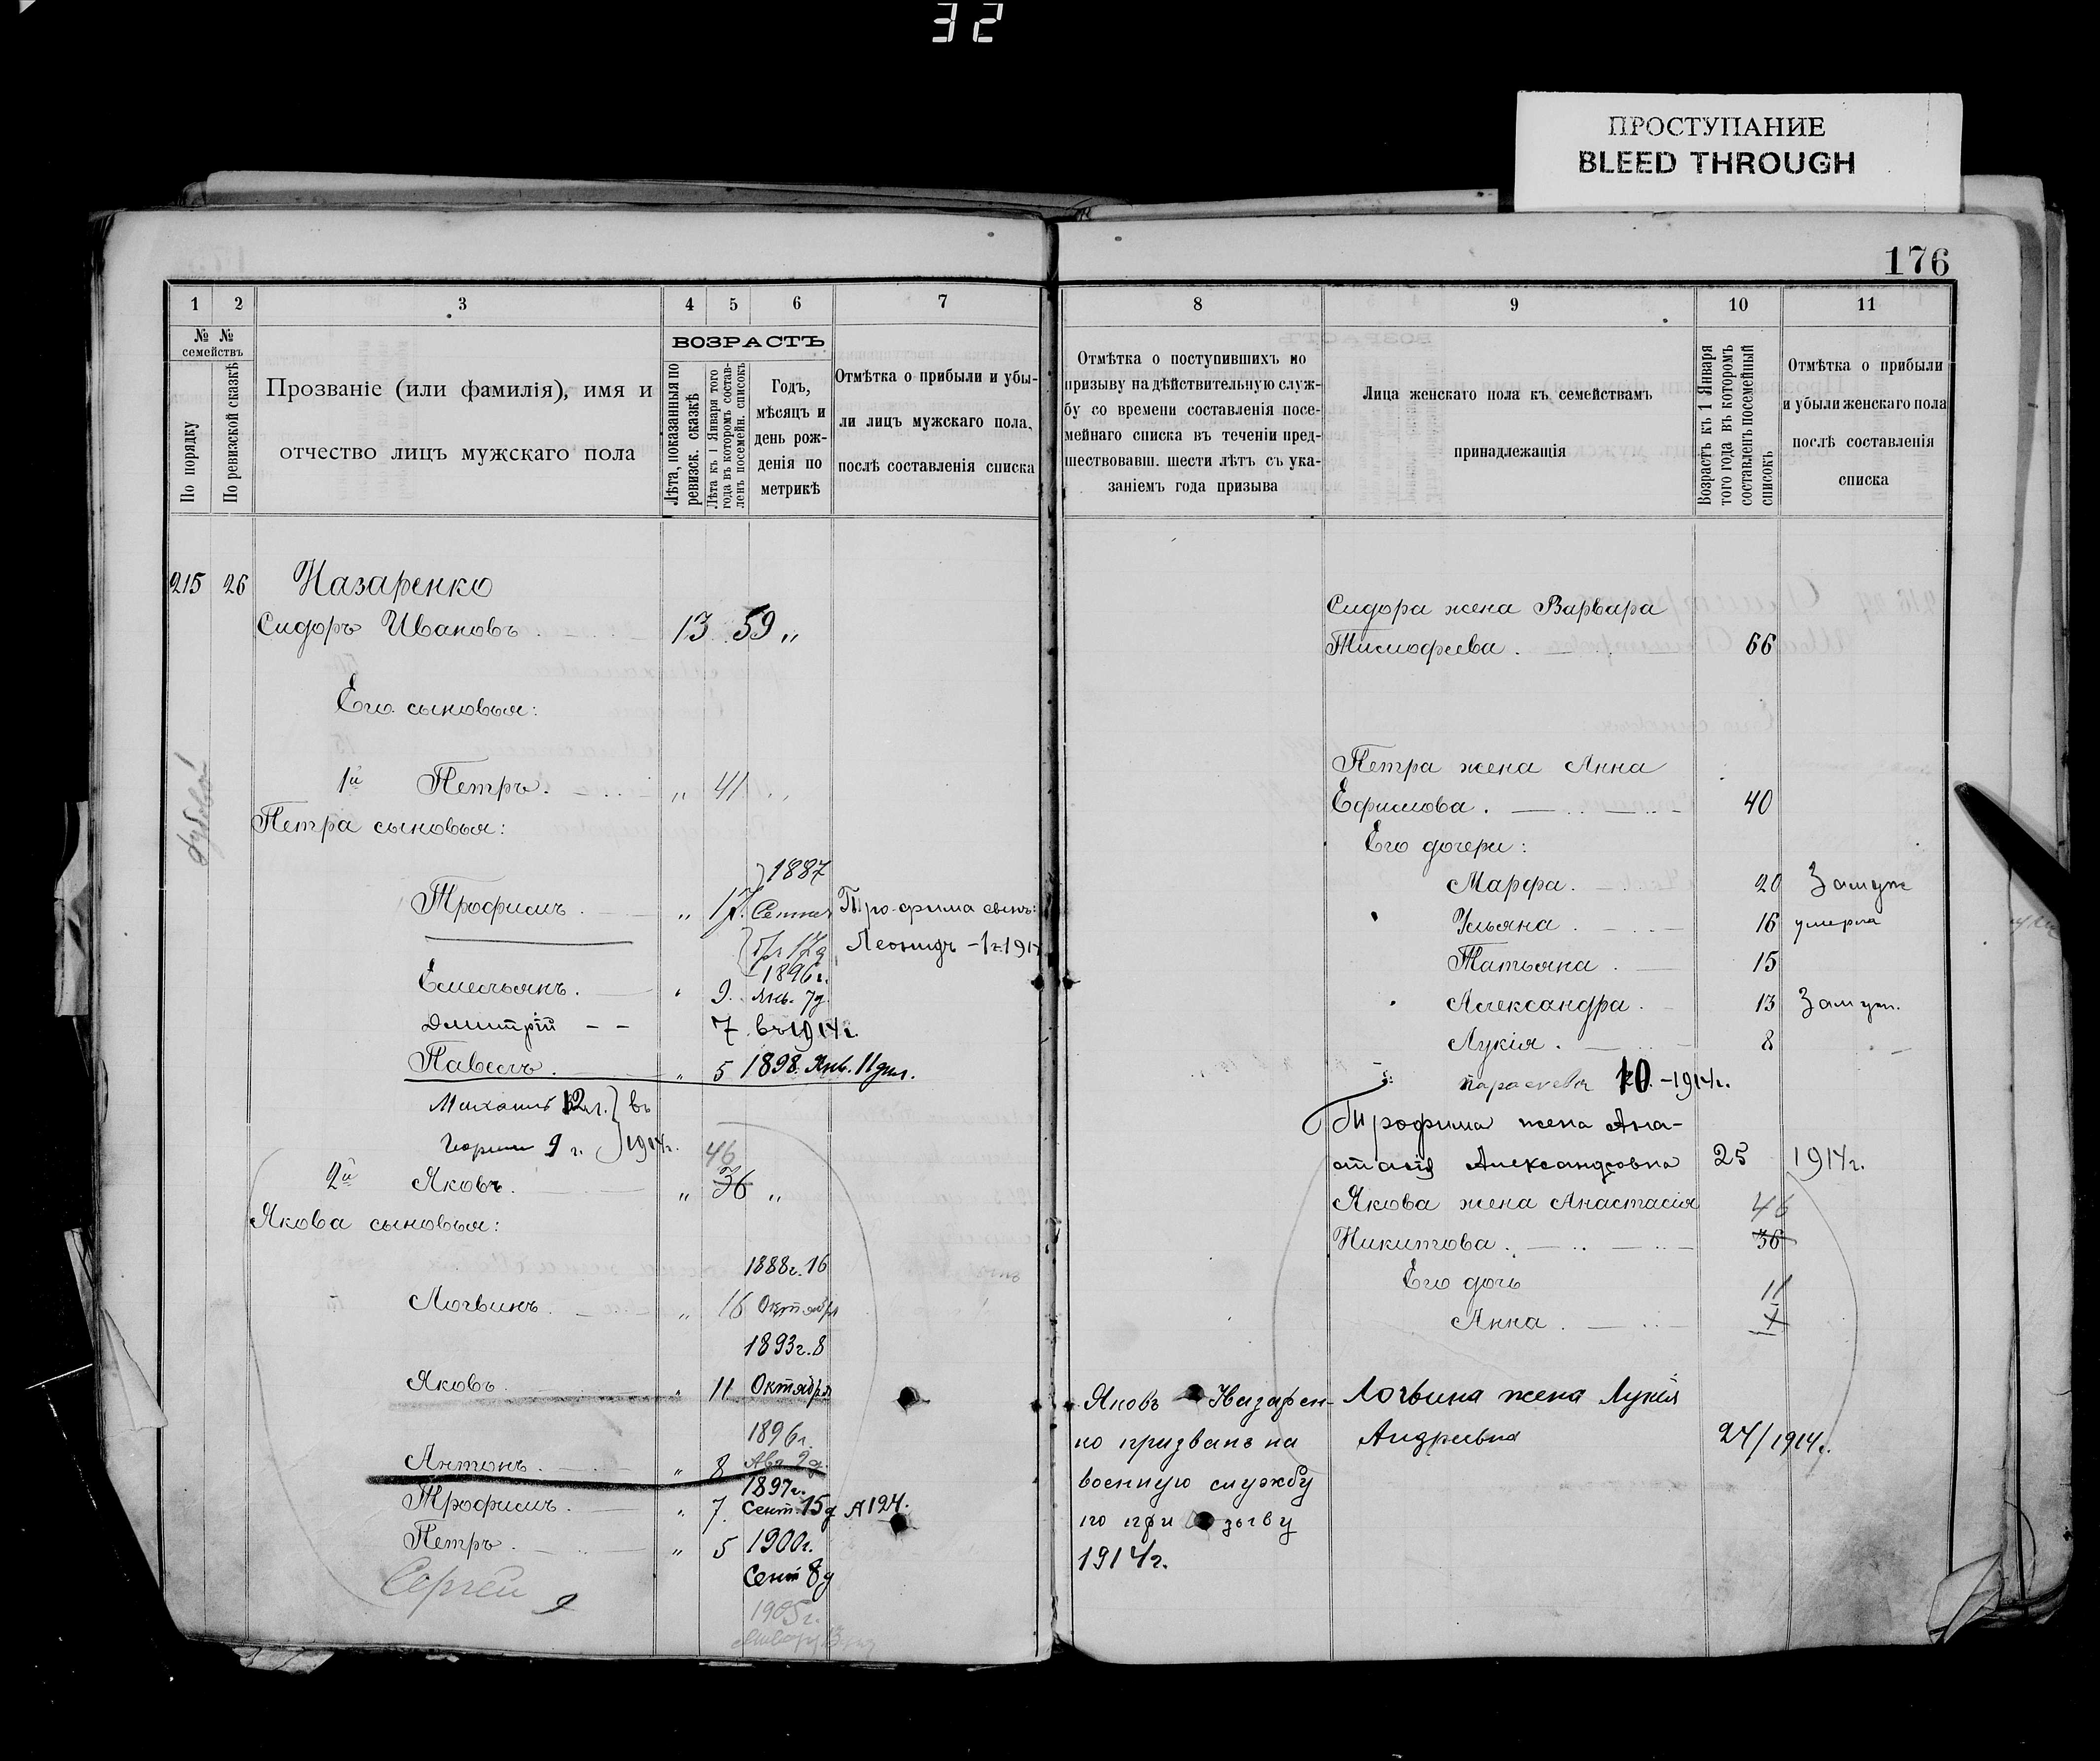 32
ПРОСТУПАНИЕ
BLEED THROUGH
176
1 2 3 4 5 6 7
№ № семействъ
По порядку
По ревизской сказкѣ
Прозваніе (или фамилія), имя и
отчество лицъ мужскаго пола
ВОЗРАСТЪ
Лѣта, показанныя по
ревизск. сказкѣ
Лѣта къ 1 Января того
года въ которомъ состав-
ленъ посемейн. списокъ
Годъ,
мѣсяцъ и
день рож-
денія по
метрикѣ
Отмѣтка о прибыли и убы-
ли лицъ мужскаго пола,
послѣ составленія списка
215 26 Назаренко
Сидоръ Ивановъ. 13 59 "
Его сыновья:
1й Петръ. " 41 "
Петра сыновья:
1887
Трофимъ. " 17. Трофима сынъ:
Леонидъ - 1 г. 1914
1896г.
Емельянъ. " 9. Янв. 7д.
Дмитрій - - 7 въ 1914г.
Павелъ. " 5 1898. Янв. 11 дня.
Михаилъ 12 л. } въ
Георгій 9 г. } 1914г.
46
2й Яковъ. " 36 "
Якова сыновья:
1888г. 16
Логвинъ. " 16 Октября
1893г. 8
Яковъ. " 11 Октября
1896г.
Антонъ. " 8 Авг. 9д.
1897г.
Трофимъ. " 7. Сент. 15д А 124.
Петръ. " 5 1900г.
Сент 8д
Сергей 9
1905г.
8 9 10 11
Отмѣтка о поступившихъ по
призыву на дѣйствительную служ-
бу со времени составленія посе-
мейнаго списка въ теченіи пред-
шествовавш. шести лѣтъ съ ука-
заніемъ года призыва
Лица женскаго пола къ семействамъ
принадлежащія
Возрастъ къ 1 Января
того года въ которомъ
составленъ посемейный
списокъ
Отмѣтка о прибыли
и убыли женскаго пола
послѣ составленія
списка
Сидора жена Варвара
Тимофеева. 66
Петра жена Анна
Ефимова. 40
Его дочери:
Марфа. 20 Замуж
Ульяна. 16 умерла
Татьяна. 15
Александра. 13 Замуж.
Лукія. 8
Параскева 10. - 1914г.
Трофима жена Ана-
стасія Александровна 25 1914г.
Якова жена Анастасія 46
Никитова. 36
Его дочь 11
Анна. 1
Яковъ Назарен-
ко призванъ на
военную службу
по призыву
1914г.
Логвина жена Лукія
Андреевна 24/1914г.